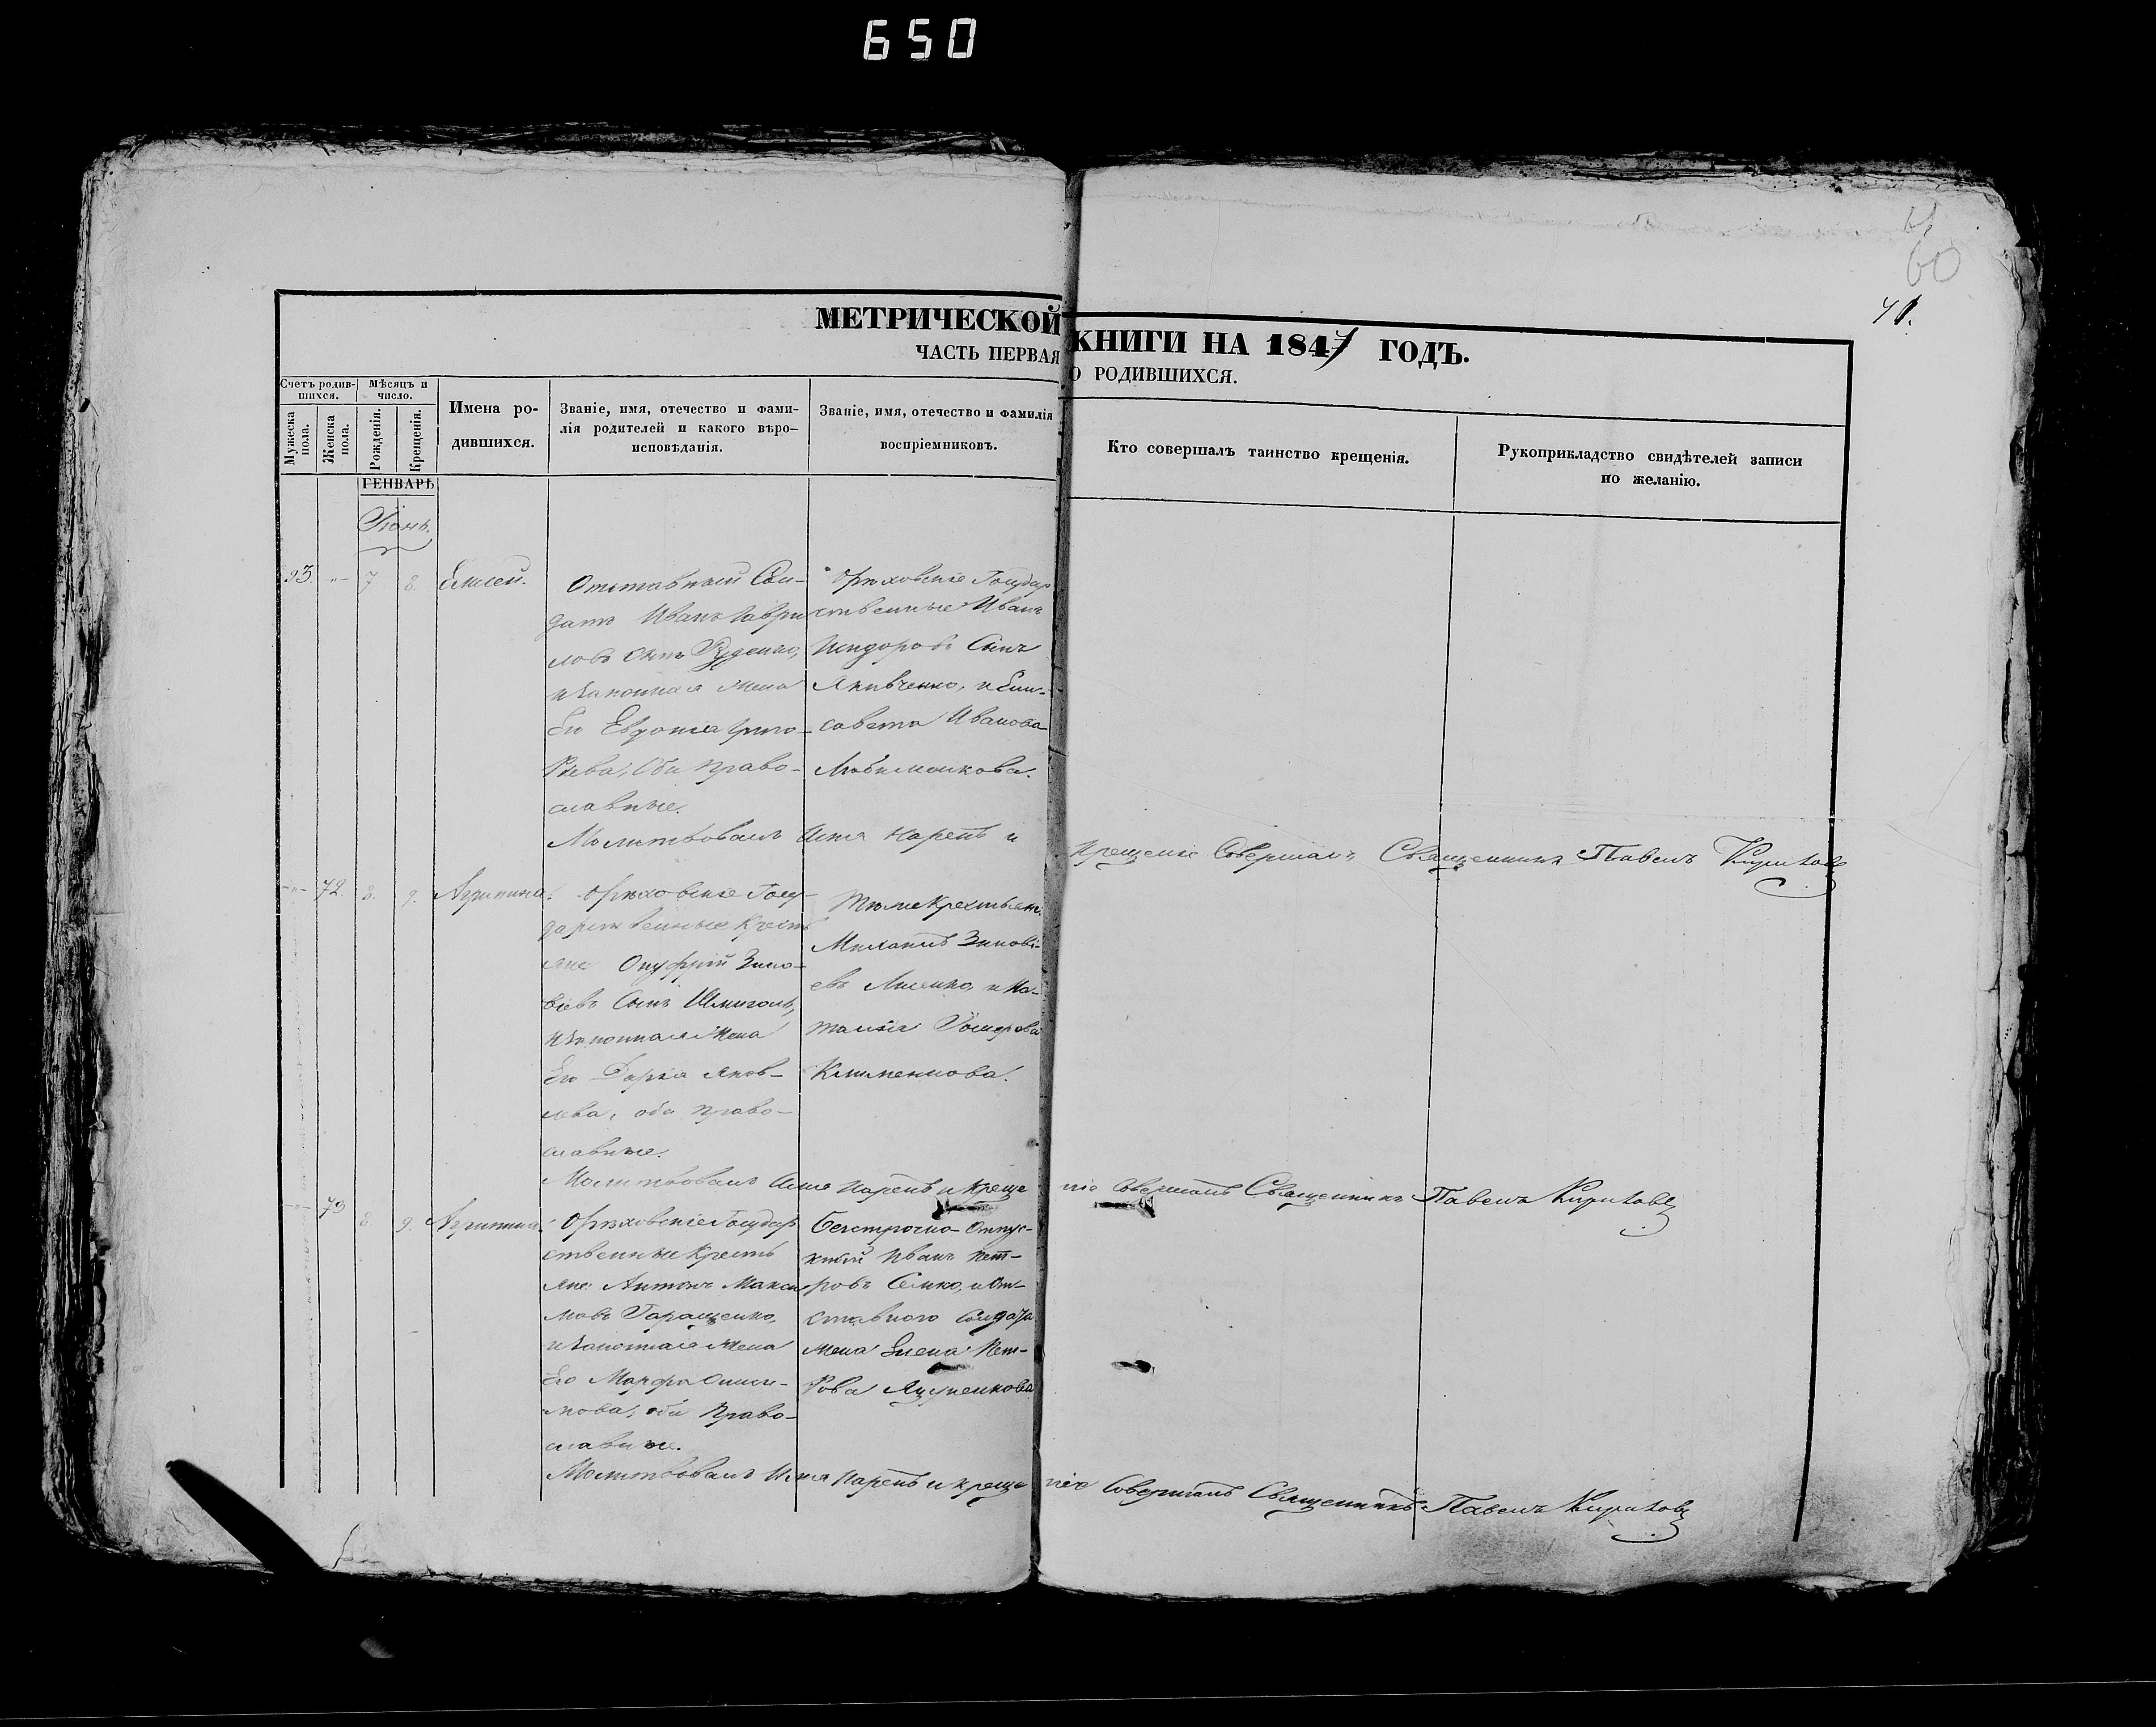 650
60
41.
МЕТРИЧЕСКОЙ КНИГИ НА 1847 ГОДЪ.
ЧАСТЬ ПЕРВАЯ О РОДИВШИХСЯ.
Счетъ родив-
шихся.
Мужеска пола.
Женска пола.
Мѣсяцъ и
число.
Рожденія.
Крещенія.
Имена ро-
дившихся.
Званіе, имя, отечество и фами-
лія родителей и какого вѣро-
исповѣданія.
Званіе, имя, отечество и фамилія
воспріемниковъ.
Кто совершалъ таинство крещенія.
Рукоприкладство свидѣтелей записи
по желанію.
ГЕНВАРЬ
Іюнь.
93. -"- 7 8.
Отставный Сол-
датъ Иванъ Гаври
ловъ Сынъ
и законная Жена
Его Евдокія Григо-
рьева, Оба Право-
славные.
Орѣховскіе Государ
ственные Иванъ
Исидоровъ Сынъ
Якивченко, и Ели-
савета Иванова
Молитвовалъ Имя Нарекъ и Крещеніе Совершалъ Священникъ Павелъ
-"- 72. 8. 9. Агрипина.
Орѣховскіе Госу-
дарственные Кресть
яне Онуфрій Зино-
віевъ Сынъ Шмиголь,
и Законная Жена
Его Дарія Яков-
лева, оба Право-
славные.
Тѣже Крестьяне
Михаилъ Зиновi-
евъ Лисенко, и На-
талія
Клименкова.
Молитвовалъ Имя Нарекъ и Креще ніе Совершалъ Священникъ Павелъ
-"- 73 8. 9. Агрипина.
Орѣховскіе Государ
ственные Кресть
яне Антонъ Макси
мовъ Геращенко,
и Законная Жена
Его Марфа
мова, оба Право-
славные.
Безсрочно-Отпус-
кный Иванъ Пет-
ровъ Семко, и От-
ставного Солдата
Жена Елена Пет-
рова Яценкова
Молитвовалъ Имя Нарекъ и Креще ніе Совершалъ Священникъ Павелъ